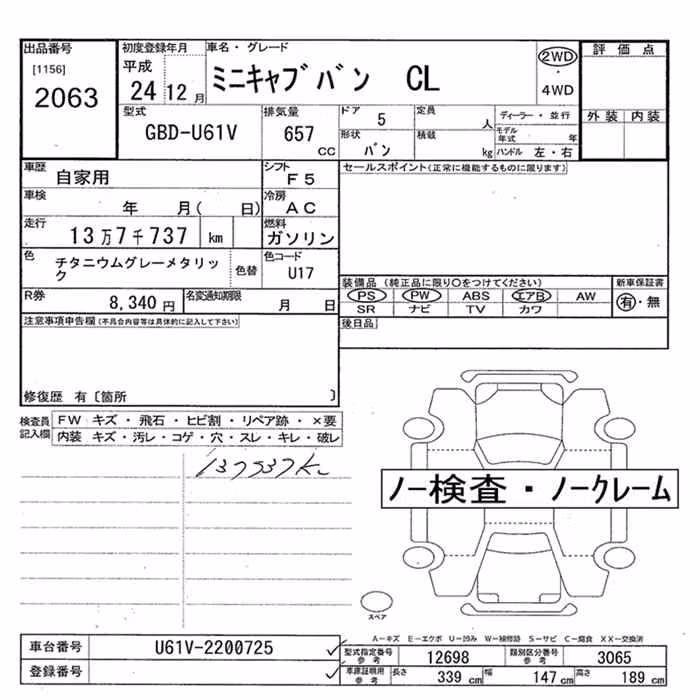 出品番号
[1156]
2063
初度登録年月
平成
24 12 月
車名・グレード
ミニキャブバン CL
2WD
・
4WD
評価点
外装 内装
型式
GBD-U61V
排気量
657
CC
ドア 5
形状 バン
定員 人
積載 kg
ディーラー・並行
モデル年式 年
ハンドル 左・右
車歴 自家用
シフト F5
車検 年 月( 日)
冷房 AC
走行 13万7千737 km
燃料 ガソリン
色 チタニウムグレーメタリック
色替
色コード U17
R券 8,340 円
名変通知期限 月 日
セールスポイント(正常に機能するものに限ります)
装備品 (純正品に限り○をつけてください)
新車保証書
PS PW ABS エアB AW
SR ナビ TV カワ
有・無
後日品
注意事項申告欄(不具合内容等は具体的に記入して下さい)
修復歴 有〔箇所 〕
検査員記入欄
FW キズ・飛石・ヒビ割・リペア跡・×要
内装 キズ・汚レ・コゲ・穴・スレ・キレ・破レ
137737K
ノー検査・ノークレーム
スペア
A−キズ E−エクボ U−凹み W−補修跡 S−サビ C−腐食 XX−交換済
車台番号 U61V-2200725
登録番号
型式指定番号 参考 12698
類別区分番号 参考 3065
車庫証明用 参考 長さ 339 cm 幅 147 cm 高さ 189 cm